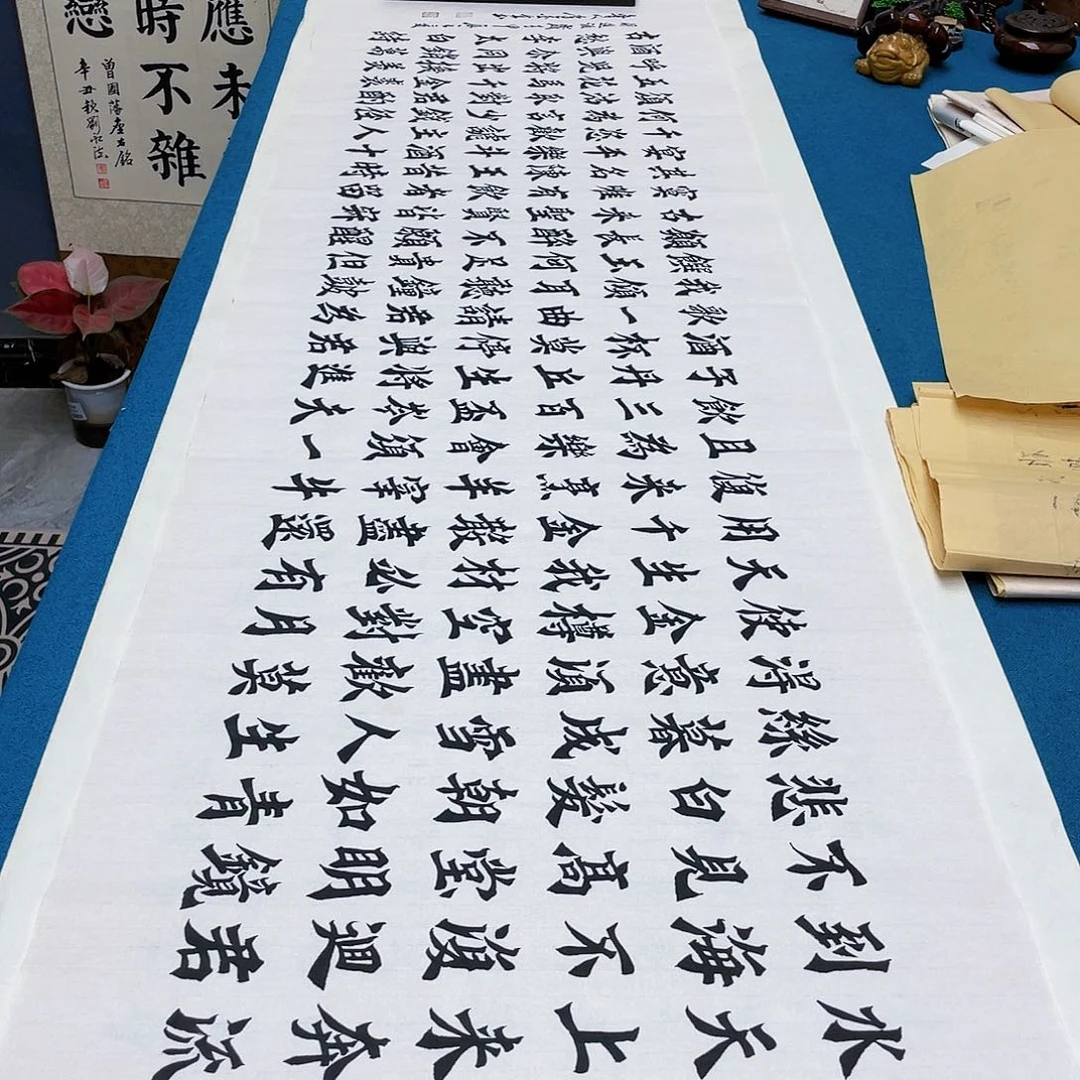 水天上來奔流
到海不復迴君
不見高堂明鏡
悲白髮朝如青
絲暮成雪人生
得意須盡歡莫
使金樽空對月
天生我材必有
用千金散盡還
復來烹羊宰牛
且為樂會須一
飲三百杯岑夫
子丹丘生將進
酒杯莫停與君
歌一曲請君為
我傾耳聽鐘鼓
饌玉何足貴但
願長醉不願醒
古來聖賢皆寂
寞惟有飲者留
其名陳王昔時
宴平樂斗酒十
千恣歡謔主人
何為言少錢徑
須沽取對君酌
五花馬千金裘
呼兒將出換美
酒與爾同銷萬
古愁李太白
應未
時不雜
戀
曾國藩座右銘
辛丑秋劉